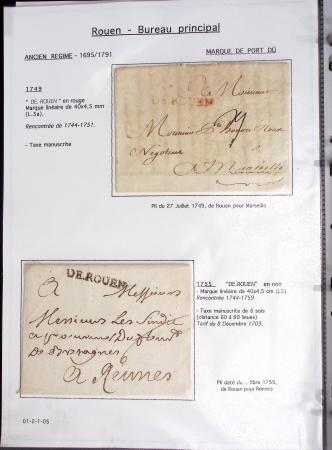 Rouen - Bureau principal
ANCIEN REGIME - 1695/1791
MARQUE DE PORT DÛ
1749
" DE. ROUEN" en rouge
Marque linéaire de 40x4,5 mm
(L.5a).
Rencontrée de 1744-1751.
- Taxe manuscrite
A Monsieur
DE ROUEN
Monsieur
Négotiant
A Marseille
Pli du 27 Juillet 1749, de Rouen pour Marseille
1755 "DE.ROUEN" en noir
- Marque linéaire de 40x4,5 cm (L5)
Rencontrée 1744-1759
- Taxe manuscrite de 6 sols
(distance 60 à 80 lieues)
Tarif du 8 Décembre 1703.
DE.ROUEN
A Messieurs
Messieurs Les Sindic
De Bretagne
A Rennes
Pli daté du .. Xbre 1755,
de Rouen pour Rennes
01-2-1-05